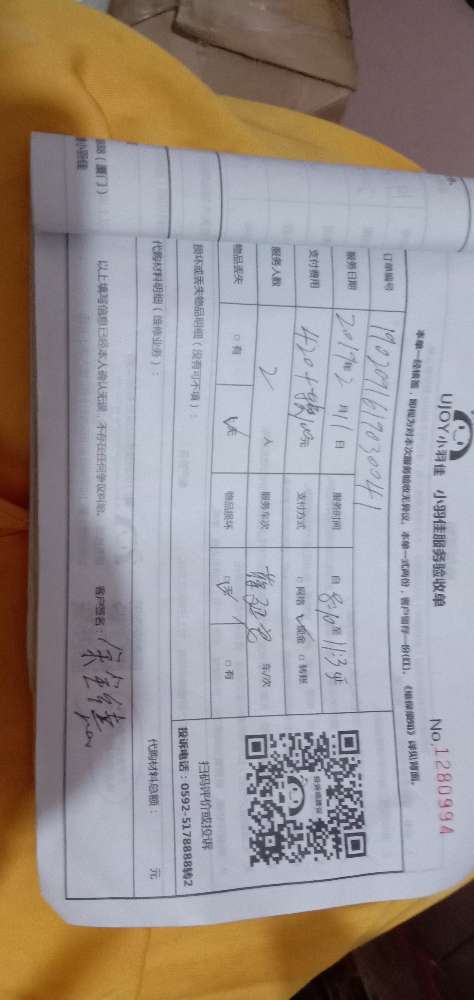 UJOY小羽佳 小羽佳服务验收单
No.1280994
本单一经接签，即视为对本次服务验收无异议，本单一式两份，客户留存一份(红)。《维保须知》详见背面。
订单编号
服务日期 2019年2月11日 服务时间 自8:10至11:34止
支付费用 420+ 元 支付方式 □网络 √现金 □转账
服务人数 2人 服务车次 车/次
物品丢失 □有 √无 物品损坏 √无 □有
损坏或丢失物品明细（没有可不填）：
扫码评价或投诉
投诉电话：0592-5178888转2
投诉或建议
代购材料明细（维修业务）： 代购材料总额： 元
以上填写信息已经本人确认无误，不存在任何争议纠纷。 客户签名：
（厦门）
小羽佳